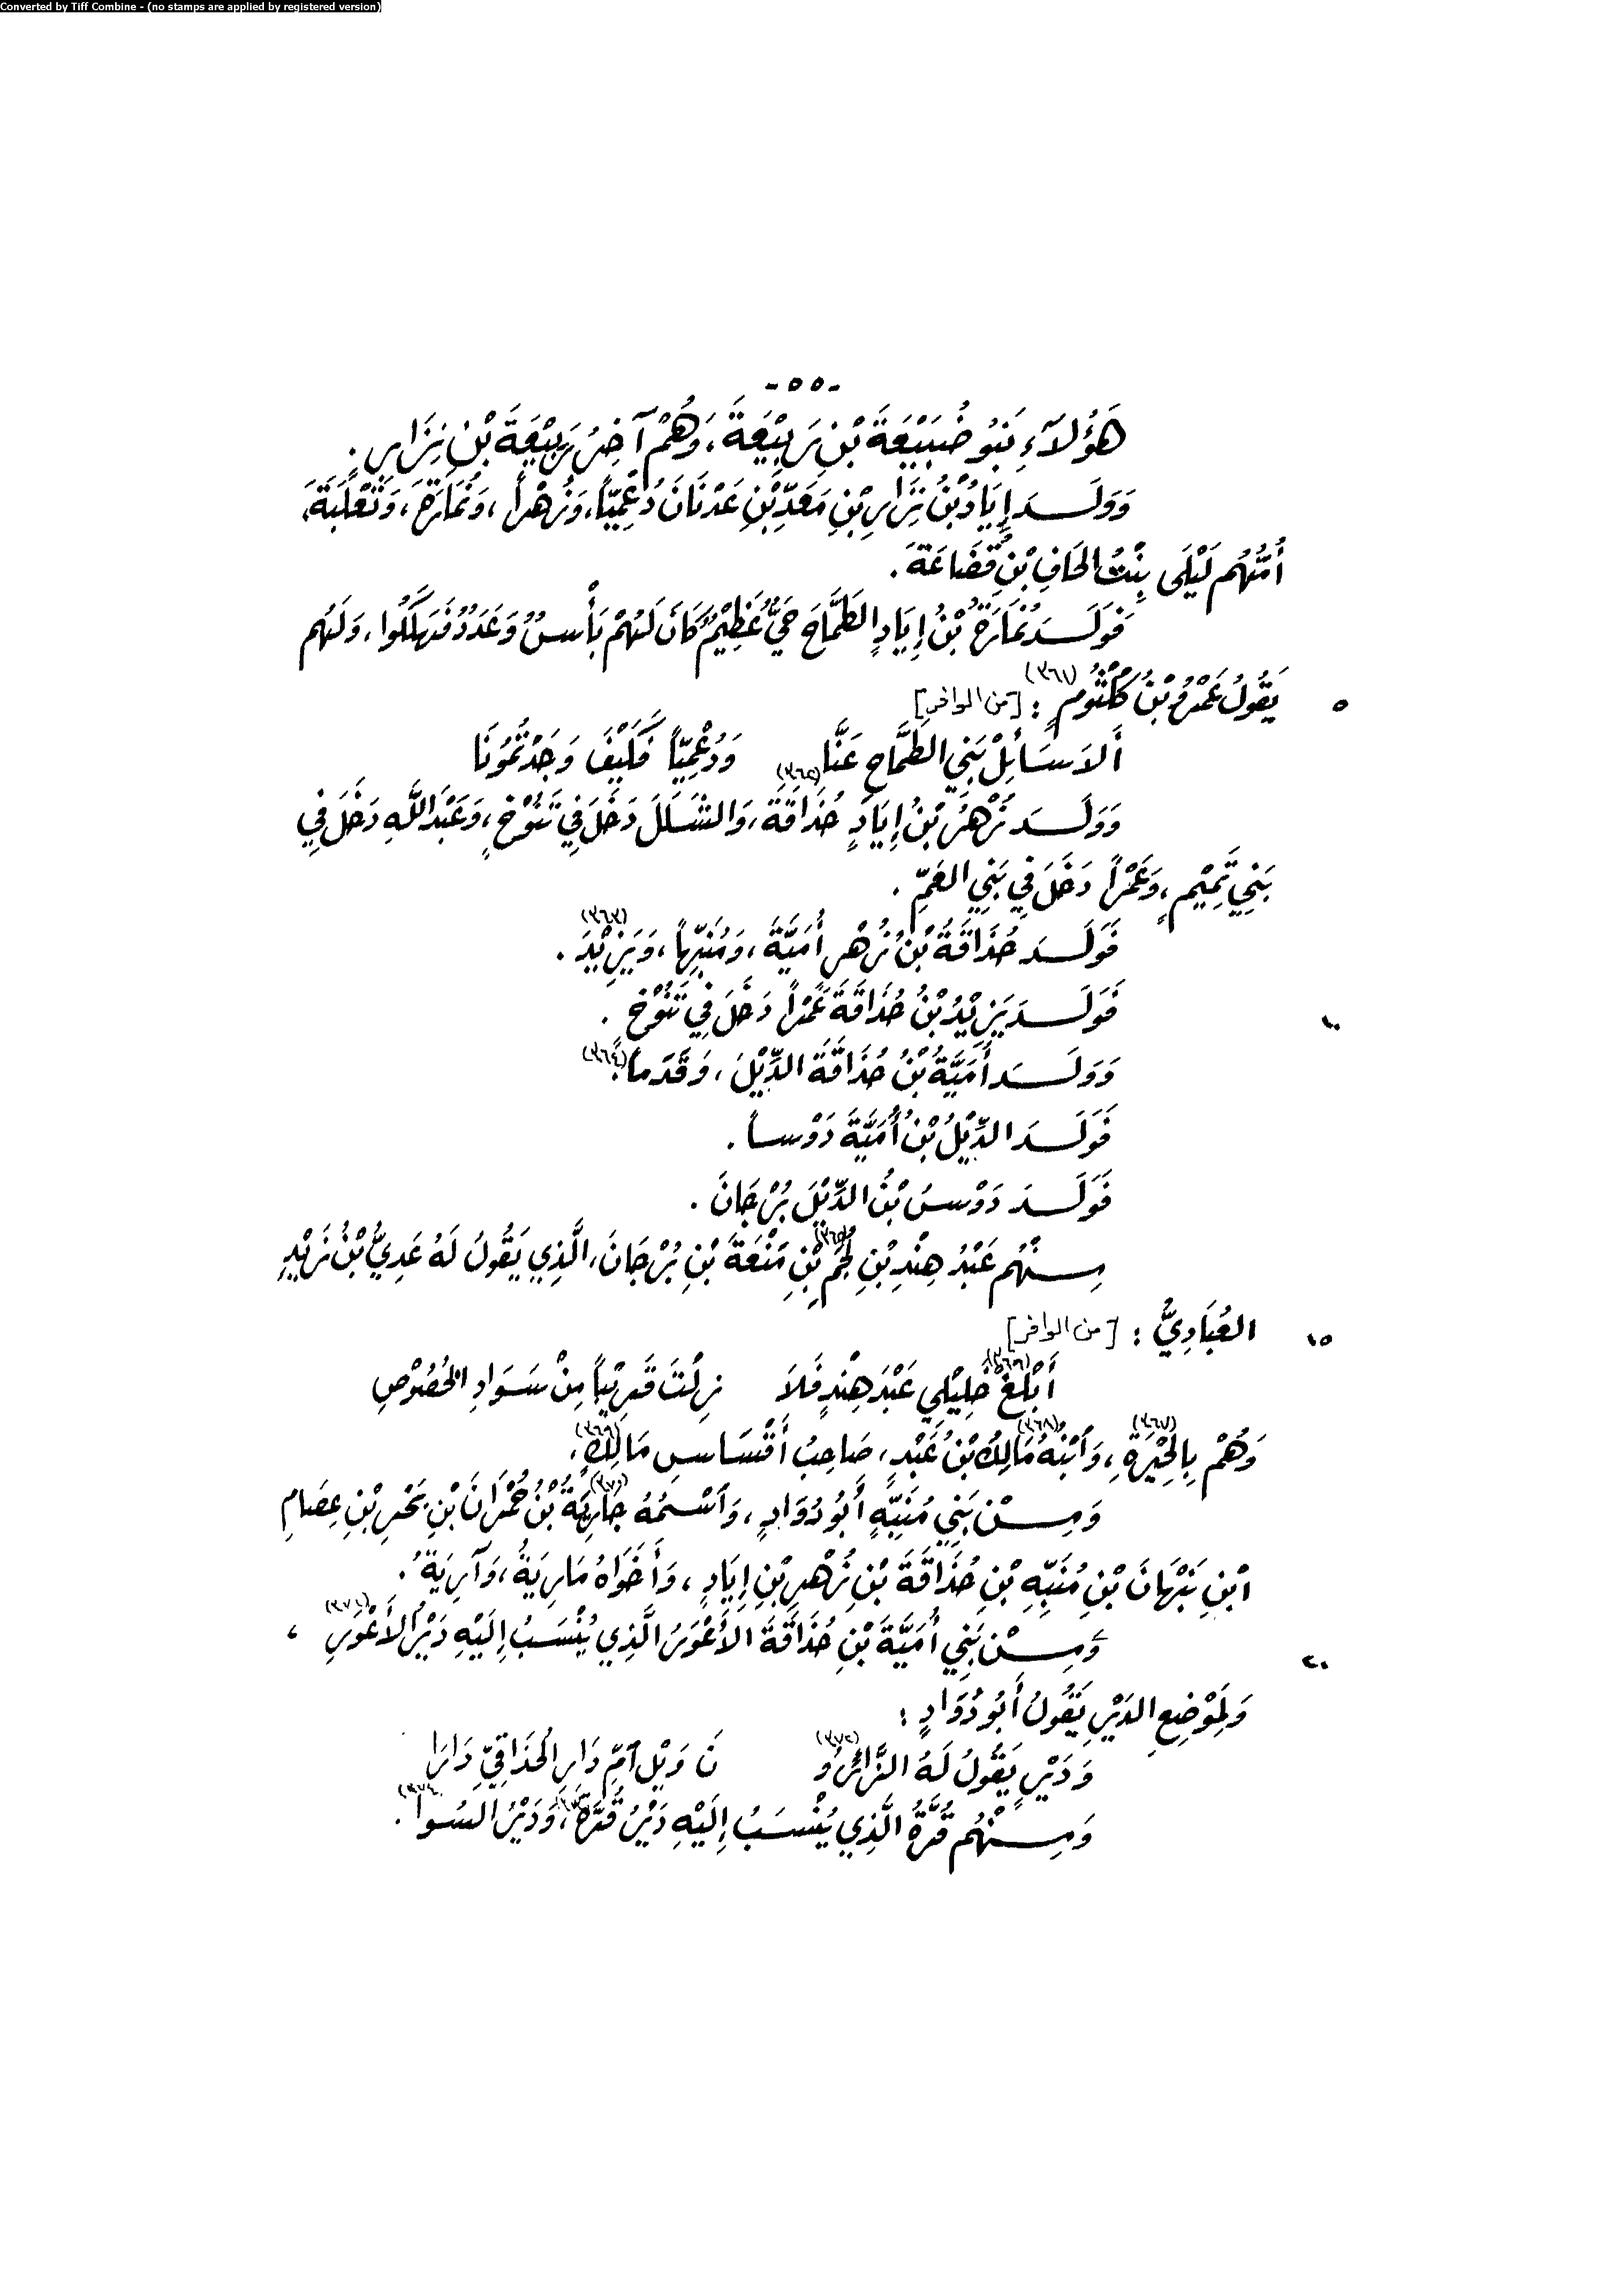 Converted by Tiff Combine - (no stamps are applied by registered version)
-٥٥-
هَؤُلاَءِ بَنُو ضُبَيْعَةَ بْنِ رَبِيْعَةَ، وَهُمْ آخِرُ رَبِيْعَةَ بْنِ نِزَارٍ.
وَوَلَــدَ إِيَادُ بْنُ نِزَارِ بْنِ مَعَدِّ بْنِ عَدْنَانَ دُعْمِيّاً، وَزُهْراً، وَنُمَارَةَ، وَثَعْلَبَةَ،
أُمُّهُم لَيْلَى بِنْتُ الحَافِ بْنِ قُضَاعَةَ.
فَوَلَــدَ نُمَارَةُ بْنُ إِيَادٍ الطَّمَّاحَ حَيٌّ عَظِيْمٌ كَانَ لَهُمْ بَأْسٌ وَعَدَدٌ فَهَلَكُوا، وَلَهُم
٥ يَقُولُ عَمْرُو بْنُ كُلْثُومٍ (٣٦١): [من الوافر]
أَلاَ سَائِلْ بَنِي الطَّمَّاحِ عَنَّا (٣٦٢) وَدُعْمِيّاً فَكَيْفَ وَجَدْتُمُونَا
وَوَلَــدَ زُهْرُ بْنُ إِيَادٍ حُذَاقَةَ، وَالشَّلَلَ دَخَلَ فِي تَنُوْخٍ، وَعَبْدَ اللَّهِ دَخَلَ فِي
بَنِي تَمِيْمٍ، وَعَمْراً دَخَلَ فِي بَنِي العَمِّ.
فَوَلَــدَ حُذَاقَةُ بْنُ زُهْرٍ أُمَيَّةَ، وَمُنَبِّهاً، وَيَزِيْدَ (٣٦٣).
١٠ فَوَلَــدَ يَزِيْدُ بْنُ حُذَاقَةَ عَمْراً دَخَلَ فِي تَنُوْخٍ.
وَوَلَــدَ أُمَيَّةُ بْنُ حُذَاقَةَ الدِّيْلَ، وَقَدَماً (٣٦٤).
فَوَلَــدَ الدِّيْلُ بْنُ أُمَيَّةَ دَوْساً.
فَوَلَــدَ دَوْسُ بْنُ الدِّيْلَ بُرْجَانَ.
مِــنْهُم عَبْدُ هِنْدِ بْنِ لُجَمِ (٣٦٥) بْنِ مَنْعَةَ بْنِ بُرْجَانَ، الَّذِي يَقُولُ لَهُ عَدِيُّ بْنُ زَيْدٍ
١٥ العُبَادِيُّ: [من الوافر]
أَبْلِغْ خَلِيْلِي عَبْدَ هِنْدٍ فَلاَ زِلْتَ قَرِيْباً مِنْ سَوَادِ الخُصُوْصِ
وَهُمْ بِالحِيْرَةِ (٣٦٧)، وَٱبْنُهُ مَالِكُ (٣٦٨) بْنُ عَبْدٍ، صَاحِبُ أَقْسَاسِ مَالِكٍ (٣٦٩)،
وَمِــنْ بَنِي مُنَبِّهٍ أَبُو دُوَادٍ، وَٱسْـمُهُ جَارِيَةُ (٣٧٠) بْنُ حُمْرَانَ بْنِ بَحْرِ بْنِ عِصَامِ
ابْنِ نَبْهَانَ بْنِ مُنَبِّهِ بْنِ حُذَاقَةَ بْنِ زُهْرِ بْنِ إِيَادٍ، وَأَخَوَاهُ مَارِيَةُ، وَآرِيَةُ.
٢٠ وَمِــنْ بَنِي أُمَيَّةَ بْنِ حُذَاقَةَ الأَعْوَرُ الَّذِي يُنْسَبُ إِلَيْهِ دَيْرُ الأَعْوَرِ (٣٧١)،
وَلِمَوْضِعِ الدَّيْرِ يَقُولُ أَبُو دُوَادٍ:
وَدَيْرٍ يَقُولُ لَهُ الزَّائِرُو (٣٧٢) نَ وَيْلُ ٱمِّ دَارِ الحُذَاقِيِّ دَارَا
وَمِــنْهُم قُرَّةُ الَّذِي يُنْسَبُ إِلَيْهِ دَيْرُ قُرَّةَ، وَدَيْرُ السُوا.